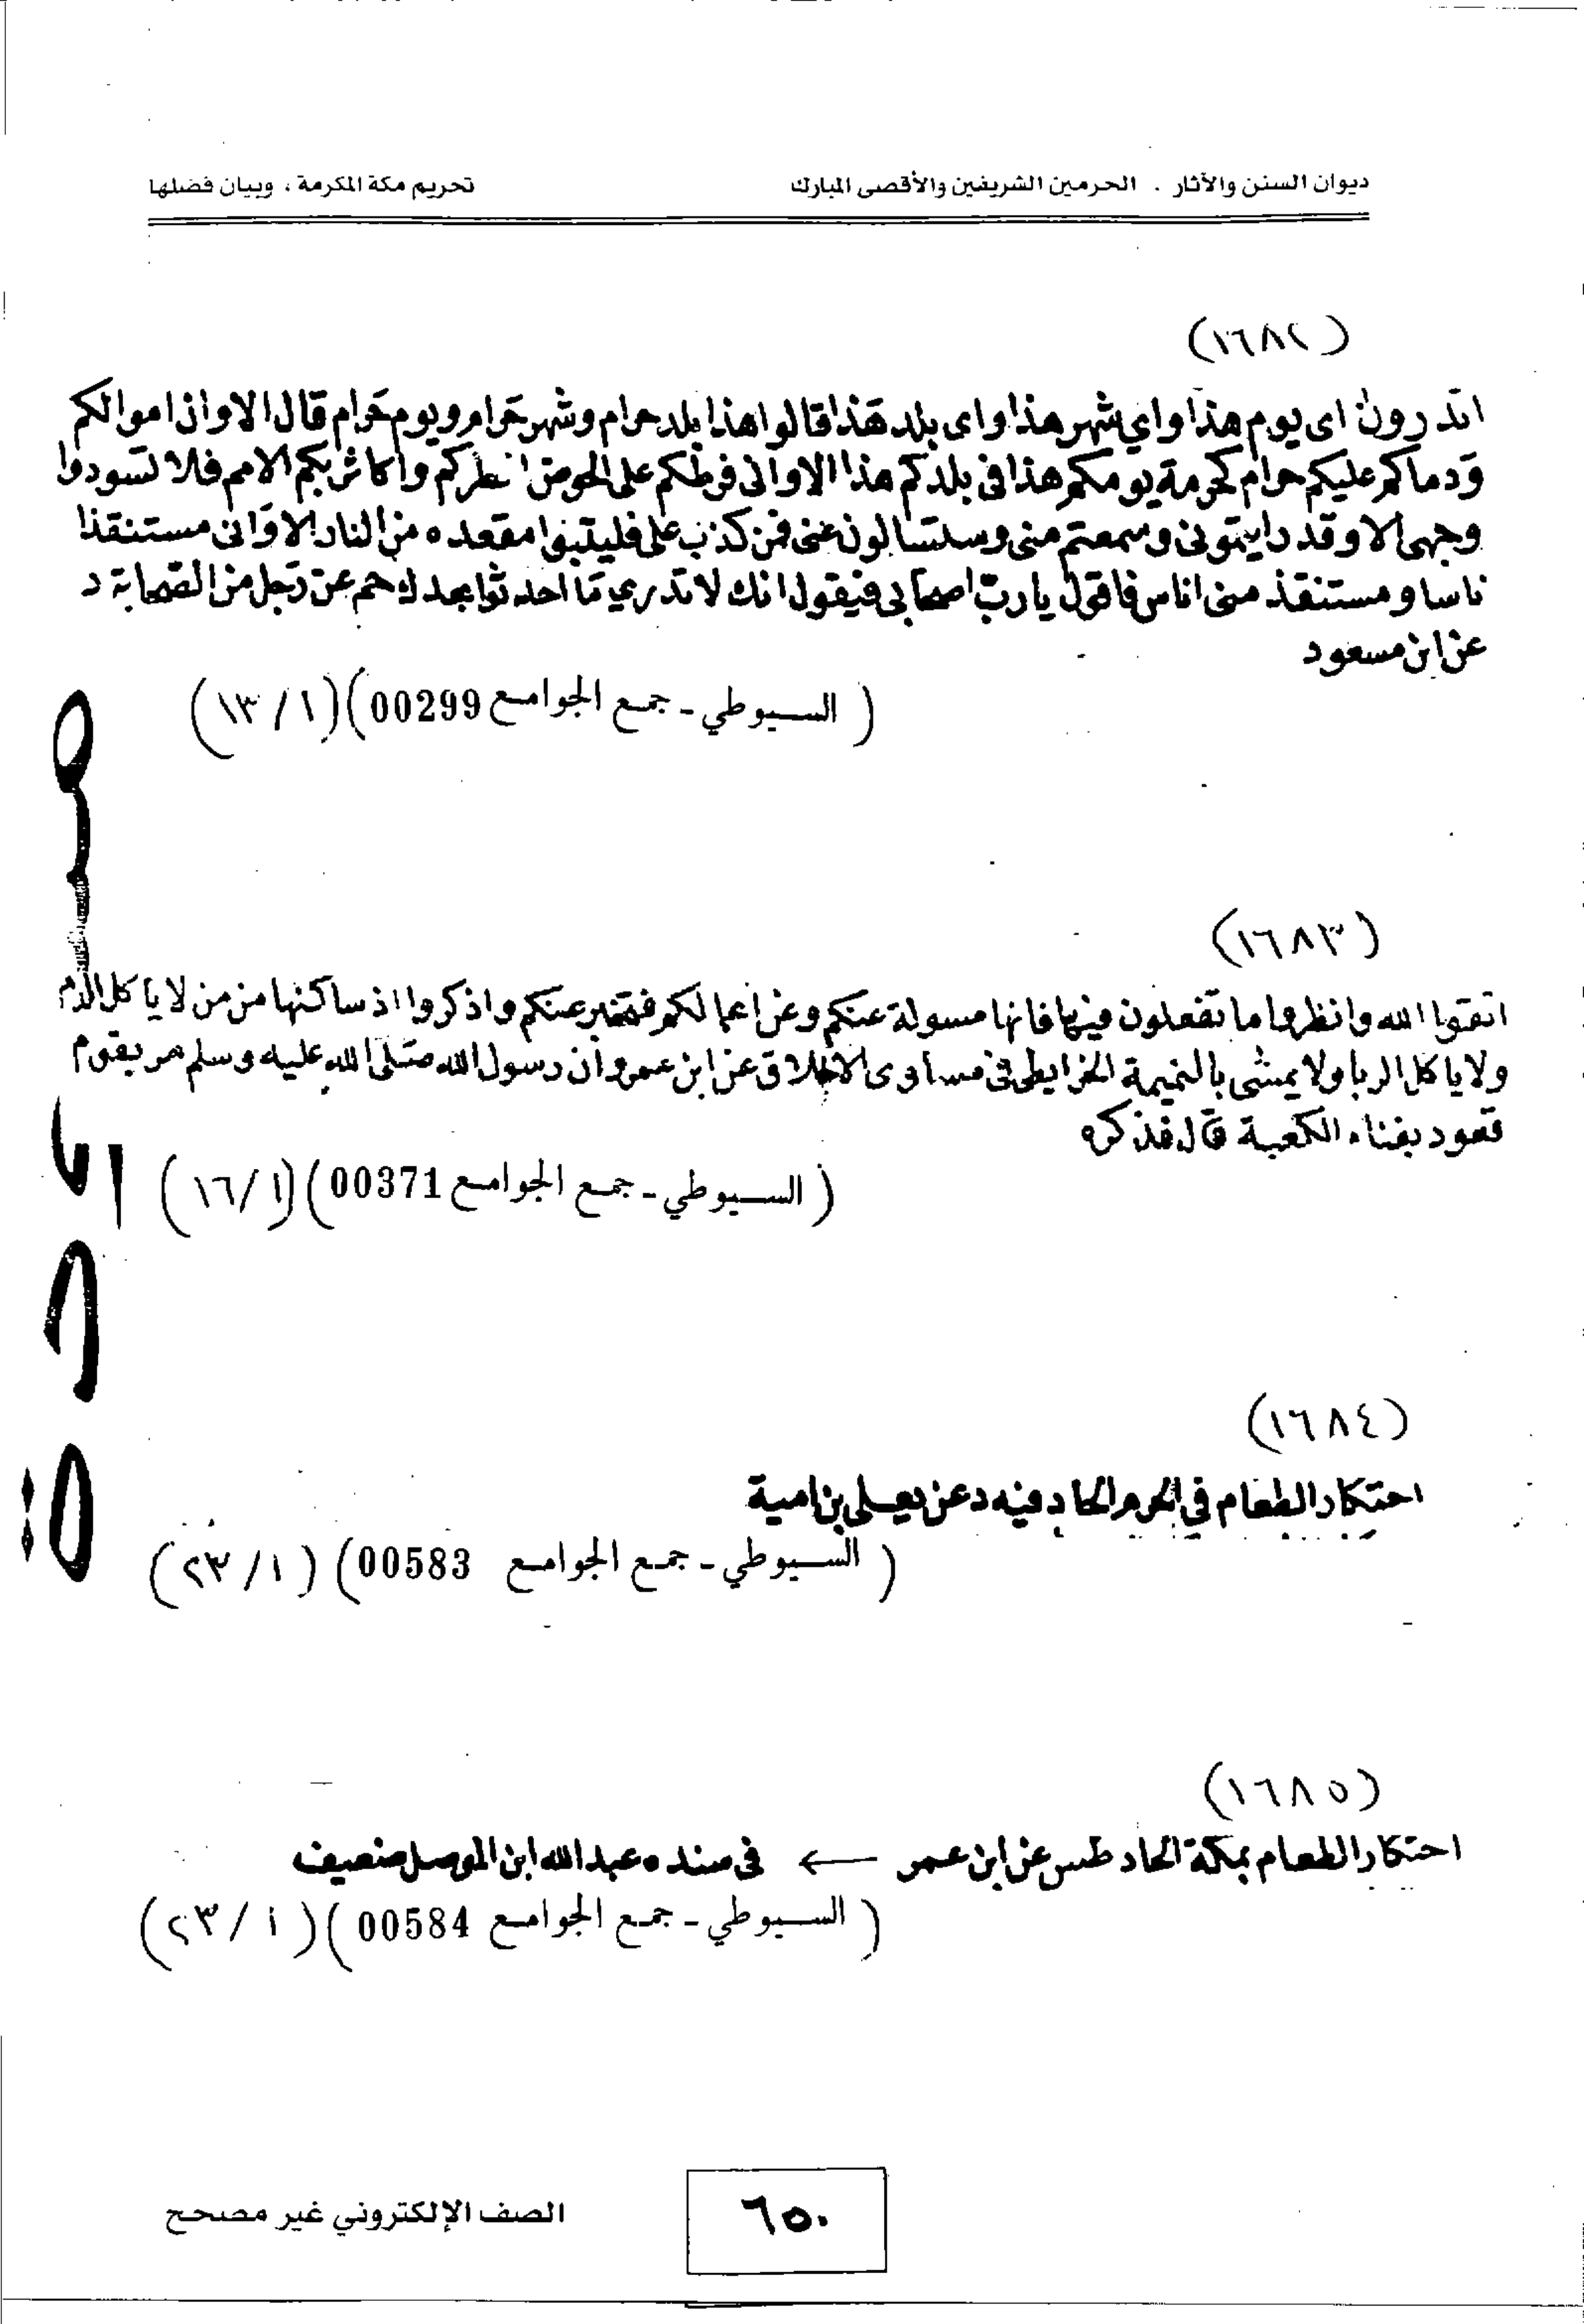 ديوان السنن والآثار . الحرمين الشريفين والأقصى المبارك
تحريم مكة المكرمة ، وبيان فضلها
(١٦٨٢)
اتدرون اى يوم هذا واي شهر هذا واى بلد هذا قالوا هذا بلد حرام وشهر حرام ويوم حرام قال الا وان اموالكم
ودماكم عليكم حرام كحرمة يومكم هذا فى بلدكم هذا الا وانى فرطكم على الحوض انظركم واكاثر بكم الامم فلا تسودوا
وجهى الا وقد رايتمونى وسمعتم منى وستسالون عنى فمن كذب على فليتبوا مقعده من النار الا وانى مستنقذ
ناسا ومستنقذ منى اناس فاقول يا رب اصحابى فيقول انك لا تدري ما احدثوا بعدك حم عن رجل من الصحابة د
عن ابن مسعود
(السيوطي - جمع الجوامع 00299) (١٣/١)
(١٦٨٣)
اتقوا الله وانظروا ما تفعلون فيها فانها مسولة عنكم وعن اعمالكم فتخبر عنكم واذكروا اذ ساكنها من من لا ياكل الدم
ولا ياكل الربا ولا يمشى بالنميمة الخرايطى فى مساوى الاخلاق عن ابن عمرو ان رسول الله صلى الله عليه وسلم مر بقوم
قعود بفناء الكعبة قال فذكره
(السيوطي - جمع الجوامع 00371) (١٦/١)
(١٦٨٤)
احتكار الطعام في الحرم الحاد فيه د عن يعلى بن امية
(السيوطي - جمع الجوامع 00583) (٢٣/١)
(١٦٨٥)
احتكار الطعام بمكة الحاد طس عن ابن عمر ← فى سنده عبد الله ابن المومل ضعيف
(السيوطي - جمع الجوامع 00584) (٢٣/١)
٦٥٠
الصف الإلكتروني غير مصحح